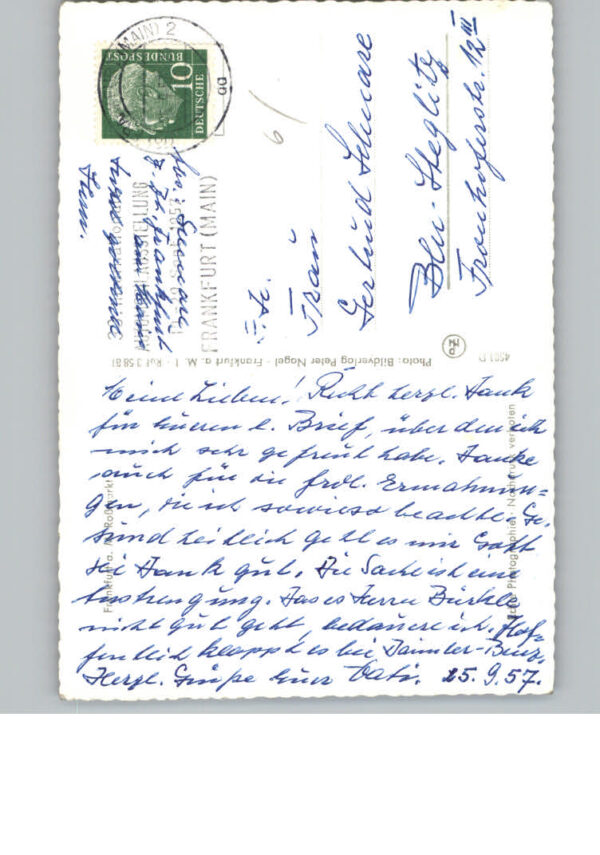 Meine Lieben! Recht herzl. Dank
für Eueren l. Brief, über den ich
mich sehr gefreut habe. Danke
auch für die frdl. Ermahnun-
gen, die ich sowieso beachte. Ge-
sundheitlich geht es mir Gott
sei Dank gut. Die Sache ist eine
Anstrengung. Das es Herrn
nicht gut geht, bedauere ich. Hof-
fentlich klappt es bei Daimler-Benz.
Herzl. Grüße Euer Vati. 25.9.57.
Frankfurt a. M. Roßmarkt
Echte Photographie · Nachdruck verboten
Photo: Bildverlag Peter Nagel · Frankfurt a. M. 1 · Ruf 3 58 81
4501 D
Abs.: Schware
z. Zt. Frankfurt
am Main
FRANKFURT (MAIN)
(MAIN) 2
DEUTSCHE
BUNDESPOST
10
Fr.
Frau
Gertrud Schware
Bln-Steglitz
Fronhoferstr. 12 III